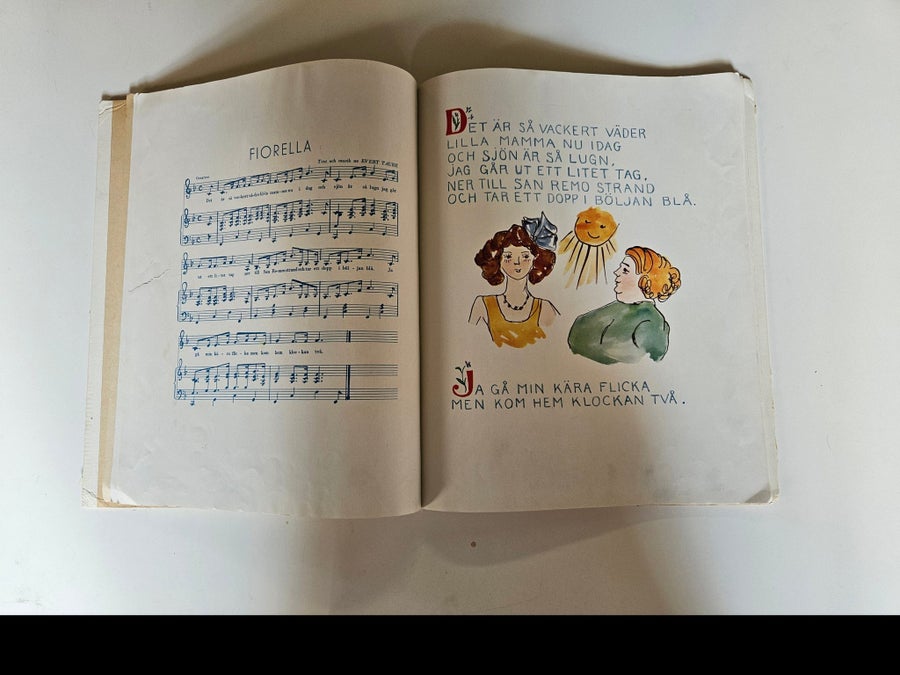 FIORELLA
Text och musik av EVERT TAUBE
Det är så vackert väder lilla mamma nu i dag och sjön är så lugn jag går
ut ett li - tet tag ner till San Remo strand och tar ett dopp i böl - jan blå. Ja
gå min kä - ra flic - ka men kom hem kloc - kan två.
DET ÄR SÅ VACKERT VÄDER
LILLA MAMMA NU IDAG
OCH SJÖN ÄR SÅ LUGN,
JAG GÅR UT ETT LITET TAG,
NER TILL SAN REMO STRAND
OCH TAR ETT DOPP I BÖLJAN BLÅ.
JA GÅ MIN KÄRA FLICKA
MEN KOM HEM KLOCKAN TVÅ.